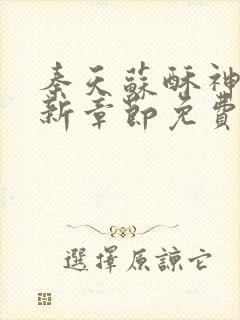 秦天蘇酥神
新章節免費
選擇原諒它